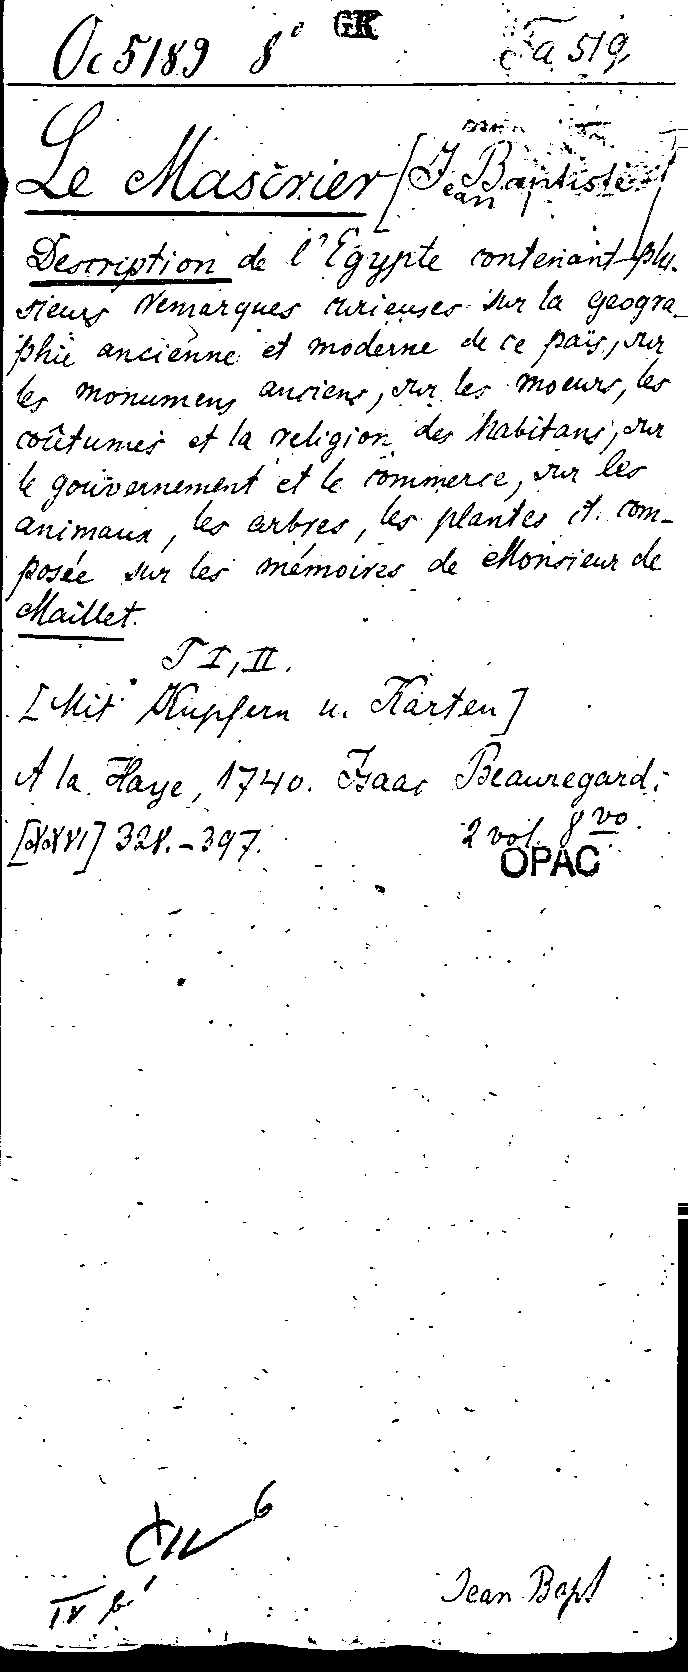 Oc 5189 8° GK Fa 519,
Le Mascrier [Jean Baptiste]
Description de l'Egypte contenant plu-
sieurs remarques curieuses sur la geogra-
phie ancienne et moderne de ce païs, sur
les monumens anciens, sur les moeurs, les
coûtumes et la religion des habitans, sur
le gouvernement et le commerce, sur les
animaux, les arbres, les plantes et. com-
posée sur les mémoires de Monsieur de
Maillet.
T I, II.
[Mit Kupfern u. Karten]
A la Haye, 1740. Isaac Beauregard:
[XXVI] 328. - 397. 2 vol. 8vo.
OPAC
6
Jean Bapt